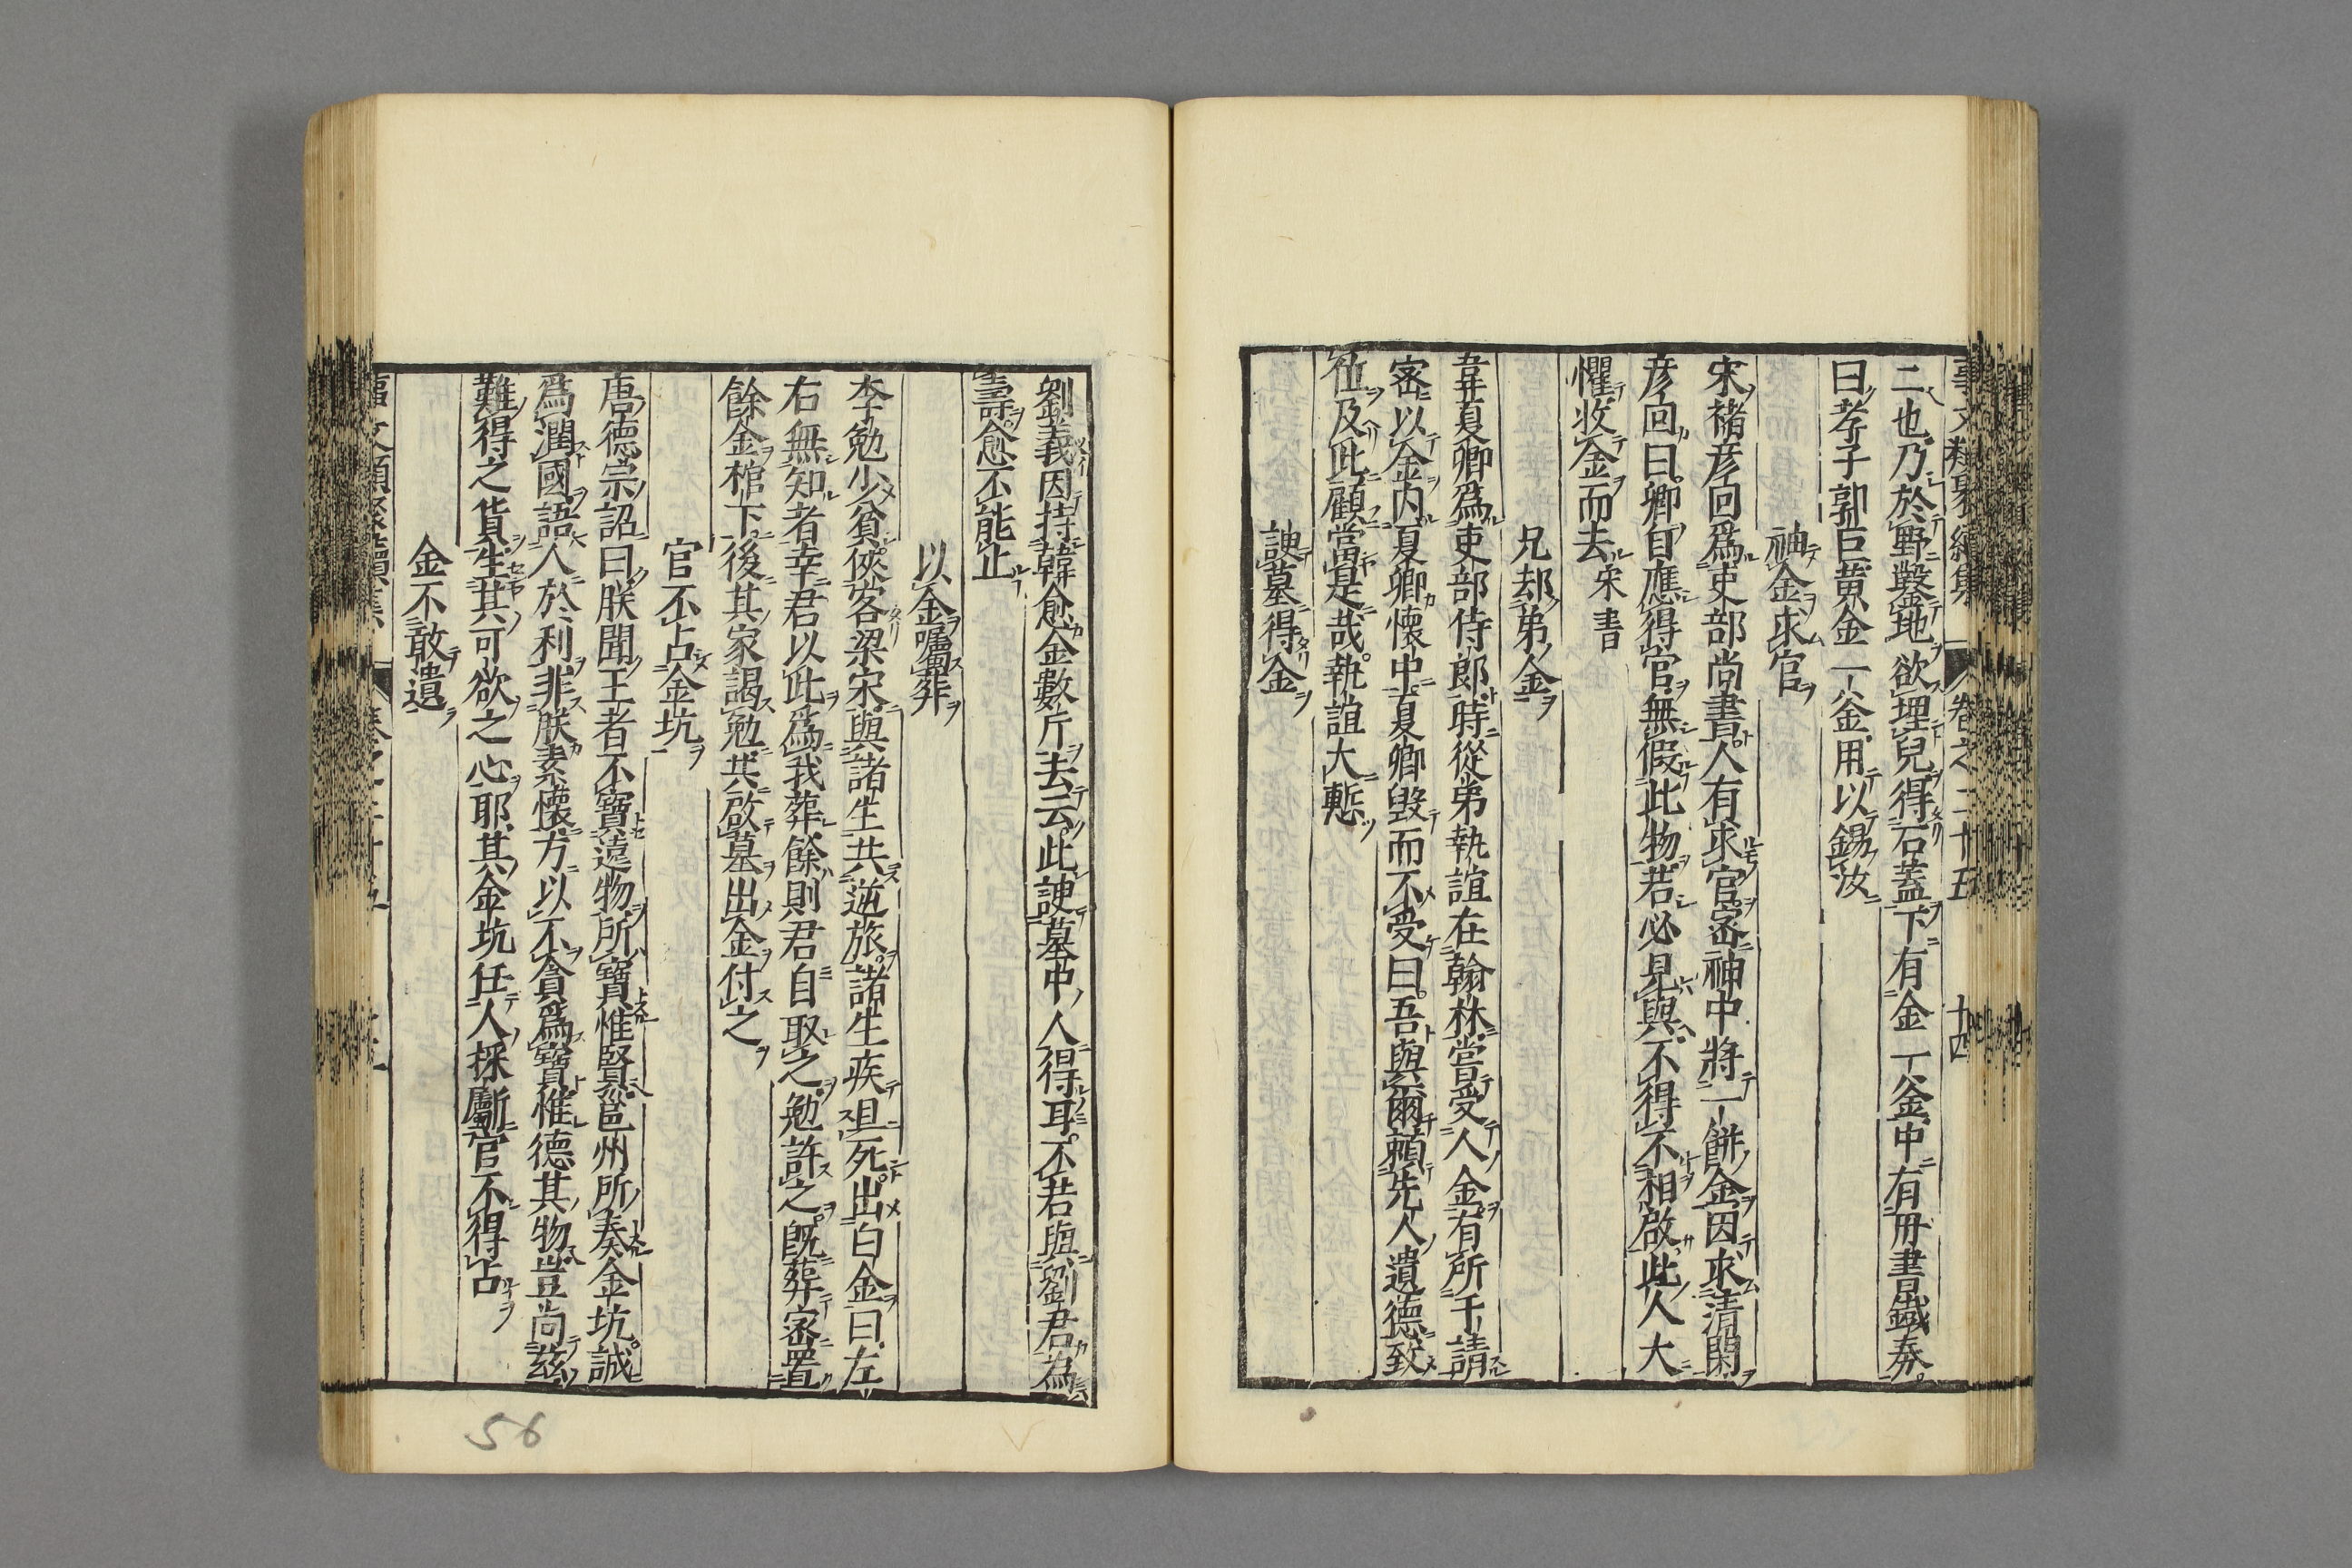 事文類聚續集 卷之二十五 十四
二也乃於野鑿地欲埋兒得石蓋下有金一釜中有冊書鐵券
曰孝子郭巨黃金一釜用以錫汝
袖金求官
宋褚彥回爲吏部尚書人有求官密袖中將一餅金因求清閑
彥回曰卿自應得官無假此物若必見與不得不相啟此人大
懼收金而去宋書
兄却弟金
韋夏卿爲吏部侍郎時從弟執誼在翰林嘗受人金有所干請
密以金內夏卿懷中夏卿毀而不受曰吾與爾賴先人遺德致
位及此顧當是哉執誼大慙
諛墓得金
劉義因持韓愈金數斤去云此諛墓中人得耳不若與劉君為
壽愈不能止
以金囑葬
李勉少貧俠客梁宋與諸生共逆旅諸生疾且死出白金曰左
右無知者幸君以此爲我葬餘則君自取之勉許之既葬密置
餘金棺下後其家謁勉共啟墓出金付之
官不占金坑
唐德宗詔曰朕聞王者不寶遠物所寶惟賢邕州所奏金坑誠
爲潤國語人於利非朕素懷方以不貪爲寶惟德其物豈尚茲
難得之貨生其可欲之心耶其金坑任人採斸官不得占
金不敢遺
56